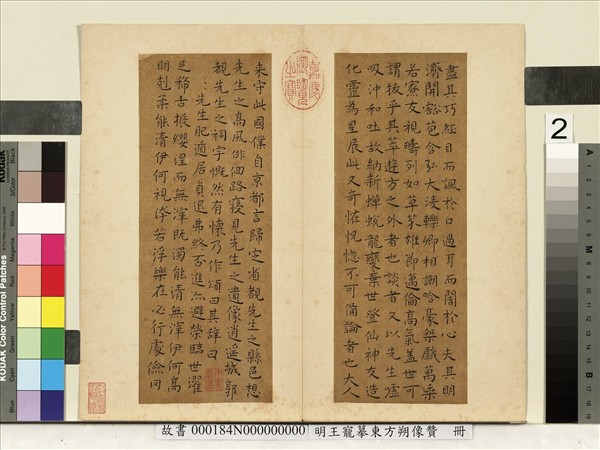 盡其巧經目而諷於口過耳而闇於心夫其明
濟開豁苞含弘大淩轢卿相嘲哈豪桀戲萬乘
若寮友視疇列如草芥雄節邁倫高氣蓋世可
謂拔乎其萃遊方之外者也談者又以先生噓
吸沖和吐故納新蟬蛻龍變棄世登仙神友造
化靈為星辰此又奇恠怳惚不可備論者也大人
来守此國僕自京都言歸定省覩先生之縣邑想
先生之高風徘徊路寢見先生之遺像逍遙城郭
覩先生之祠宇慨然有懷乃作頌曰其辭曰
先生肥遁居貞退弗終否進亦避榮臨世濯
足稀古振纓涅而無滓既濁能清無滓伊何高
明剋柔能清伊何視洿若浮樂在必行處儉罔
故書 000184N000000000 明王寵摹東方朔像贊 冊
2
KODAK Color Control Patches
Blue
Cyan
Green
Yellow
Red
Magenta
White
3/Color
Black
A
M
B